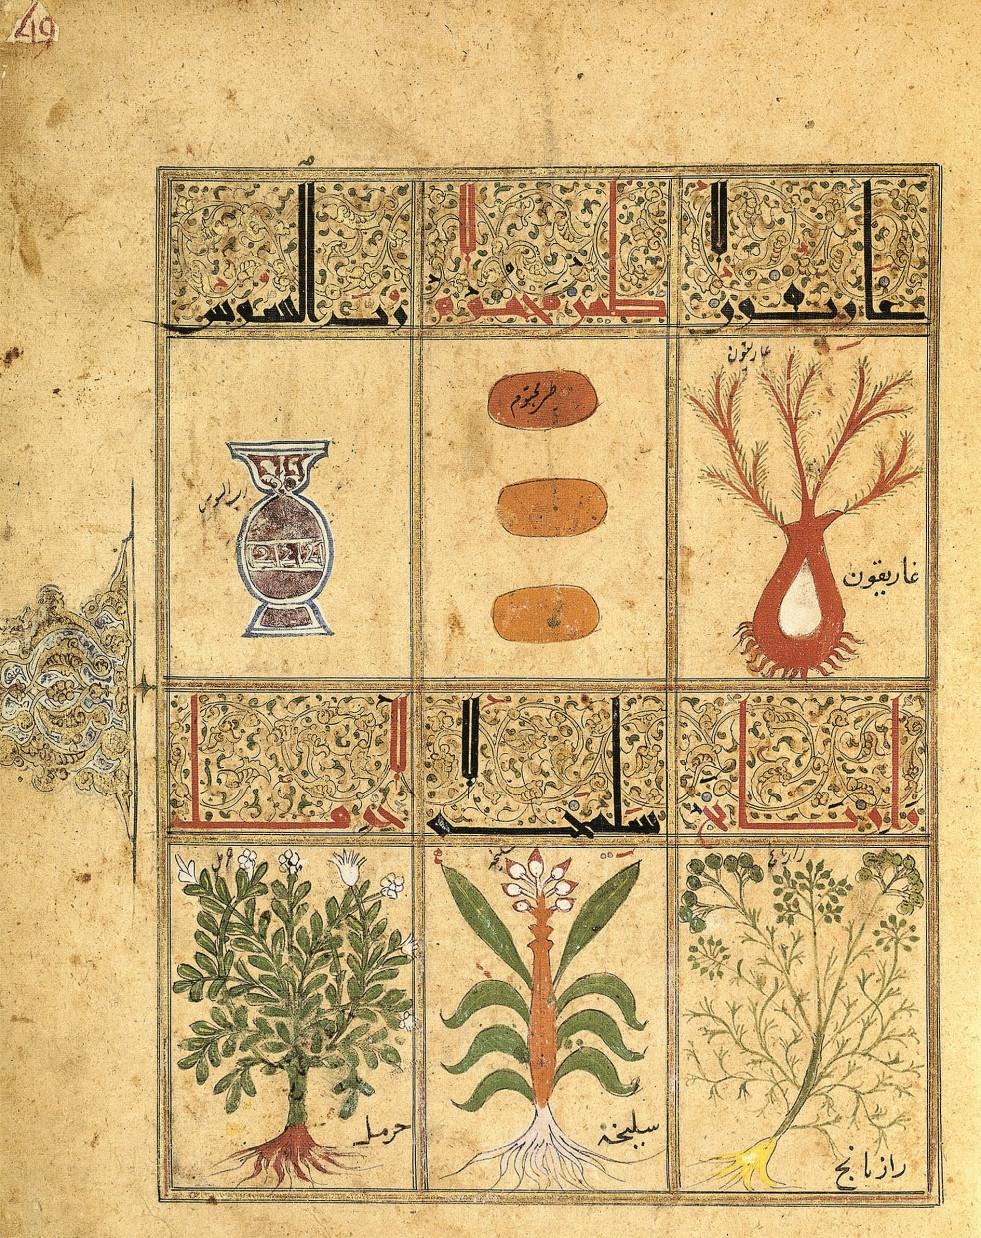 49
غاريقون
طين مختوم
رب السوس
غاريقون
غاريقون
طين مختوم
رب السوس
رازيانج
سليخه
حرمل
رازيانج
رازيانج
سليخه
سليخة
حرمل
حرمل